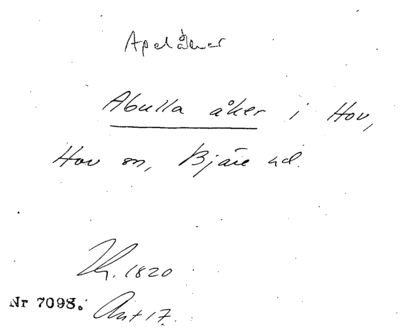 Apelåker
Abulla åker i Hov,
Hov sn, Bjäre hd.
1820
Nr 7098. Akt 17.